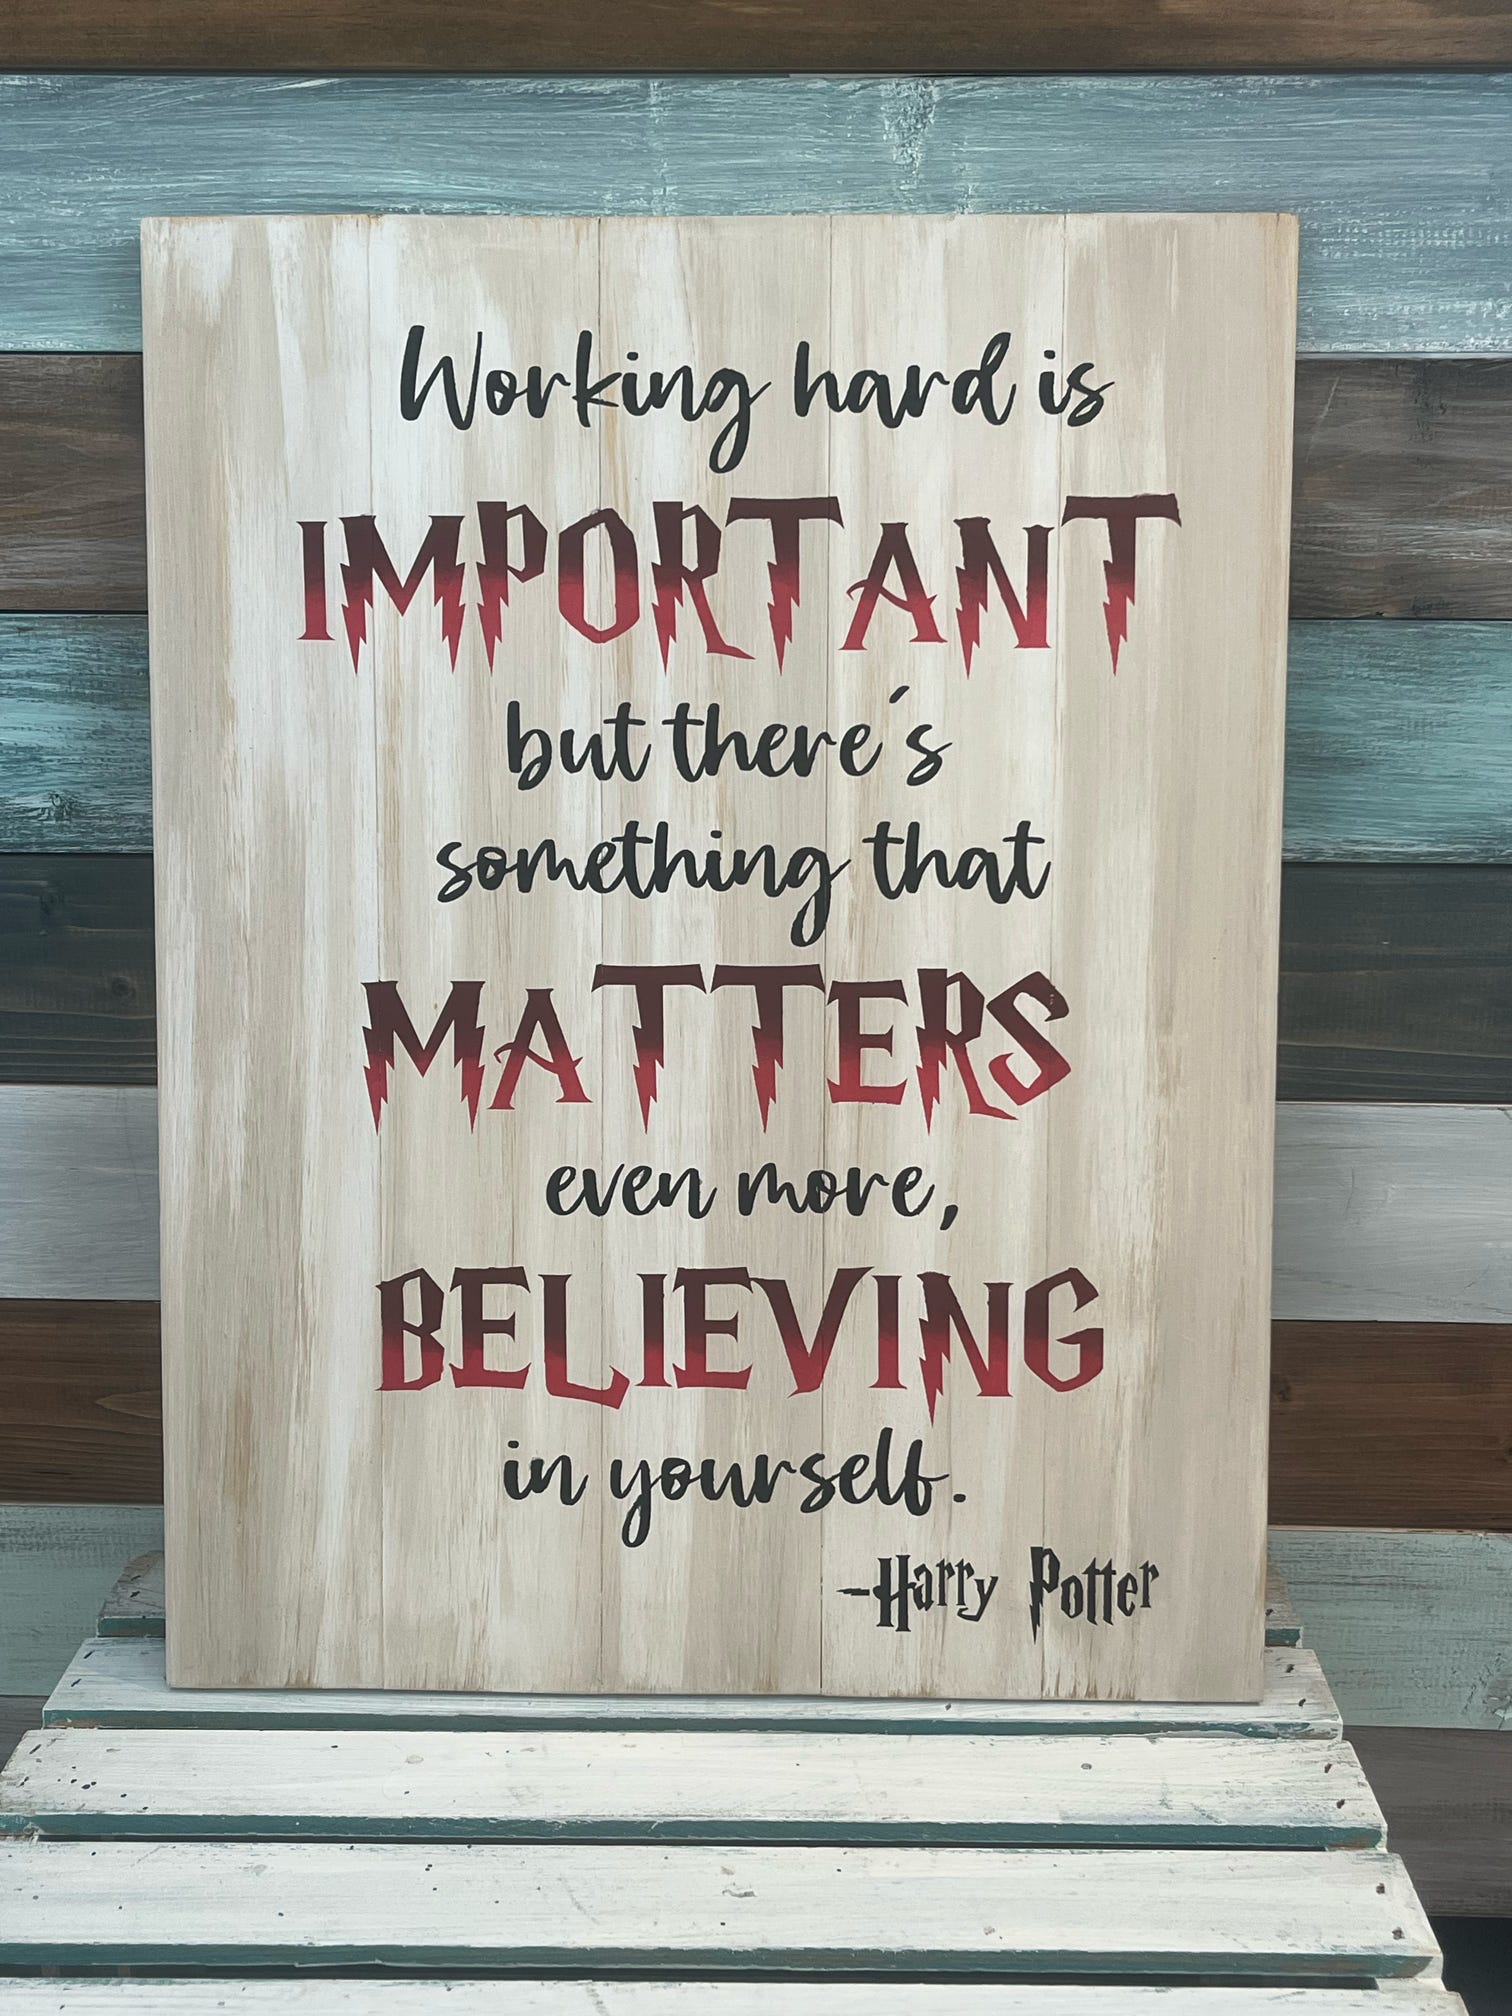 Working hard is
IMPORTANT
but there's
something that
MATTERS
even more,
BELIEVING
in yourself.
-Harry Potter